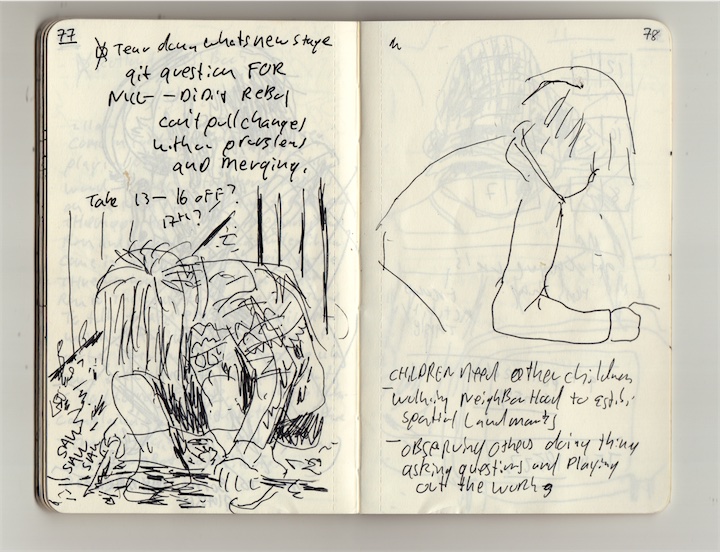 77
Tear down whats new stage
git question FOR
— DiDiT ReBol
can't pull changes
without problems
and merging.
Take 13 — 16 off?
17th?
SAW
SAW
SAW
78
CHILDREN need other children
— walking neighborhood to
spatial Landmarks
— OBSERVING OTHERS doing thing
asking questions and Playing
out the working